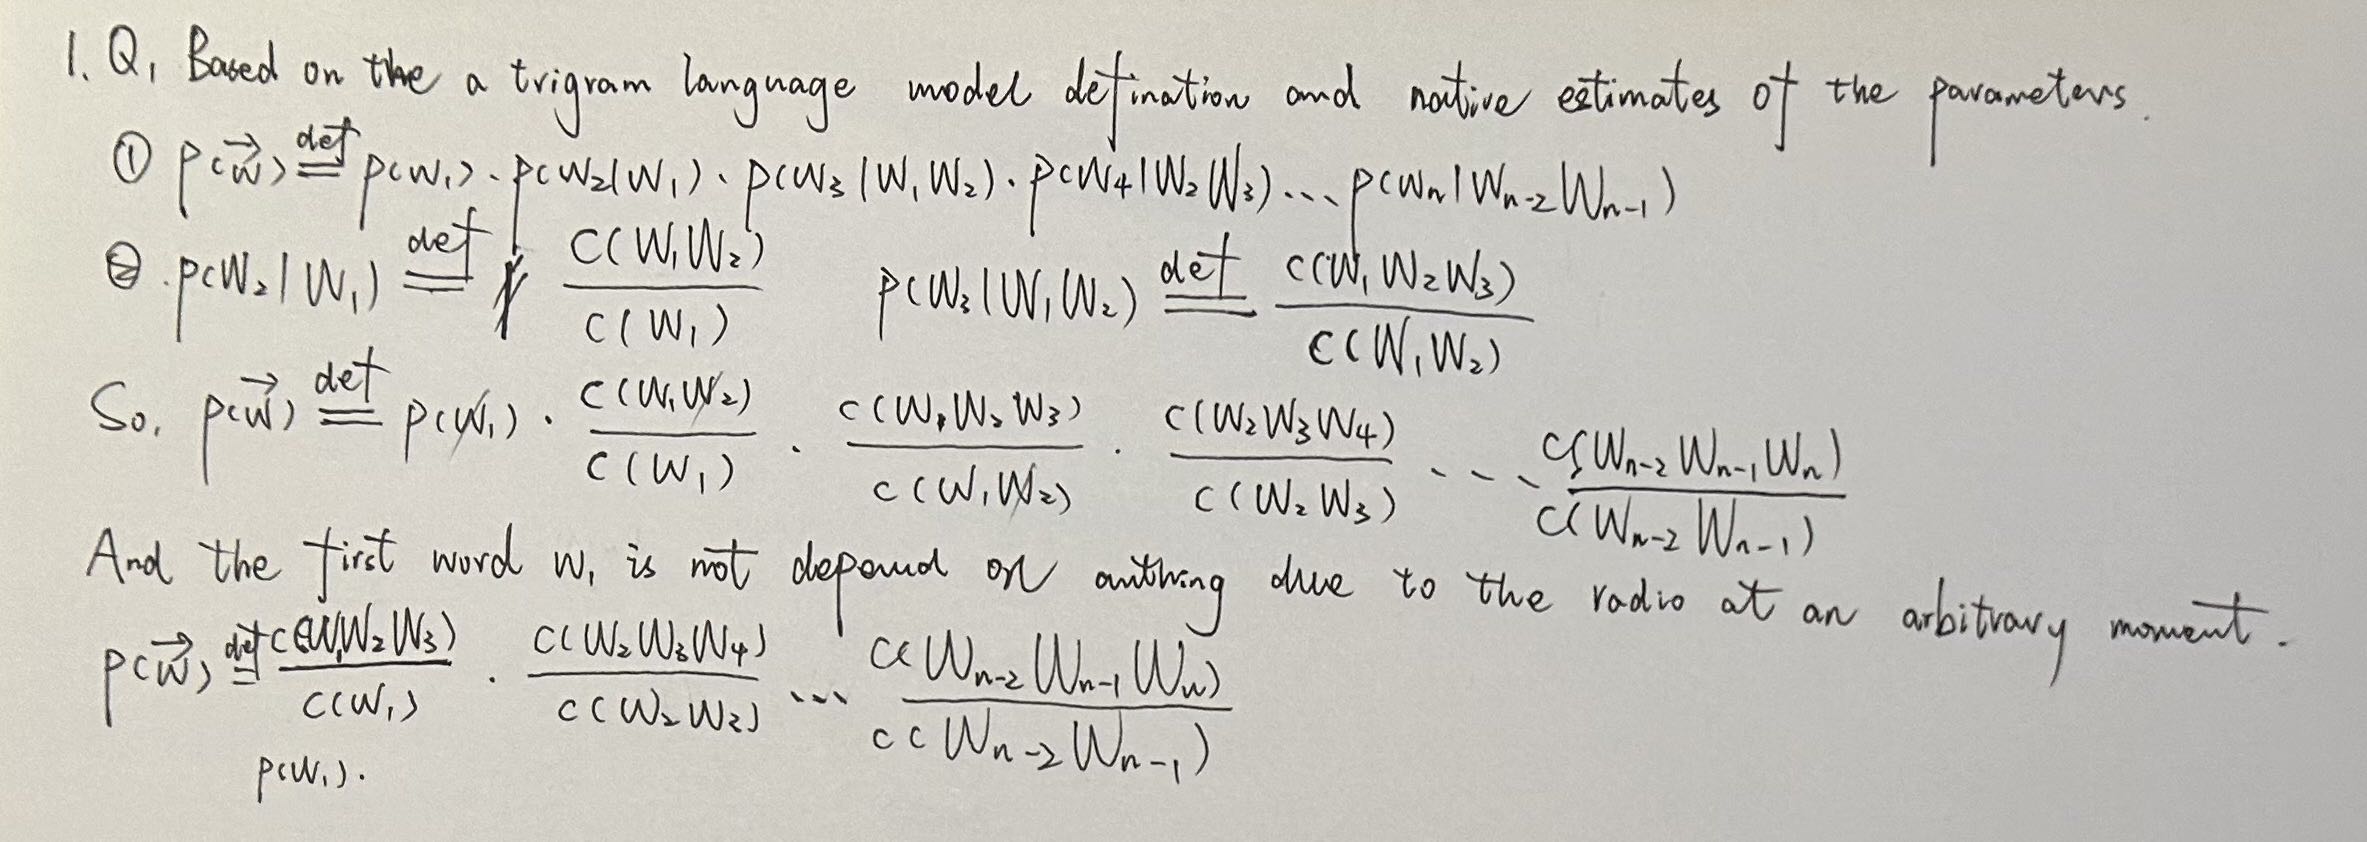 1. Q1 Based on the a trigram language model defination and native estimates of the parameters.
① p(w⃗) ≝ p(w₁) · p(w₂|w₁) · p(w₃|w₁w₂) · p(w₄|w₂w₃) ... p(wₙ|wₙ₋₂wₙ₋₁)
② p(w₂|w₁) ≝ c(w₁w₂)/c(w₁) p(w₃|w₁w₂) ≝ c(w₁w₂w₃)/c(w₁w₂)
So, p(w⃗) ≝ p(w₁) · c(w₁w₂)/c(w₁) · c(w₁w₂w₃)/c(w₁w₂) · c(w₂w₃w₄)/c(w₂w₃) ... c(wₙ₋₂wₙ₋₁wₙ)/c(wₙ₋₂wₙ₋₁)
And the first word w₁ is not depend on anthing due to the radio at an arbitrary moment.
p(w⃗) ≝ c(w₁w₂w₃)/c(w₁) · c(w₂w₃w₄)/c(w₂w₃) ... c(wₙ₋₂wₙ₋₁wₙ)/c(wₙ₋₂wₙ₋₁)
p(w₁).